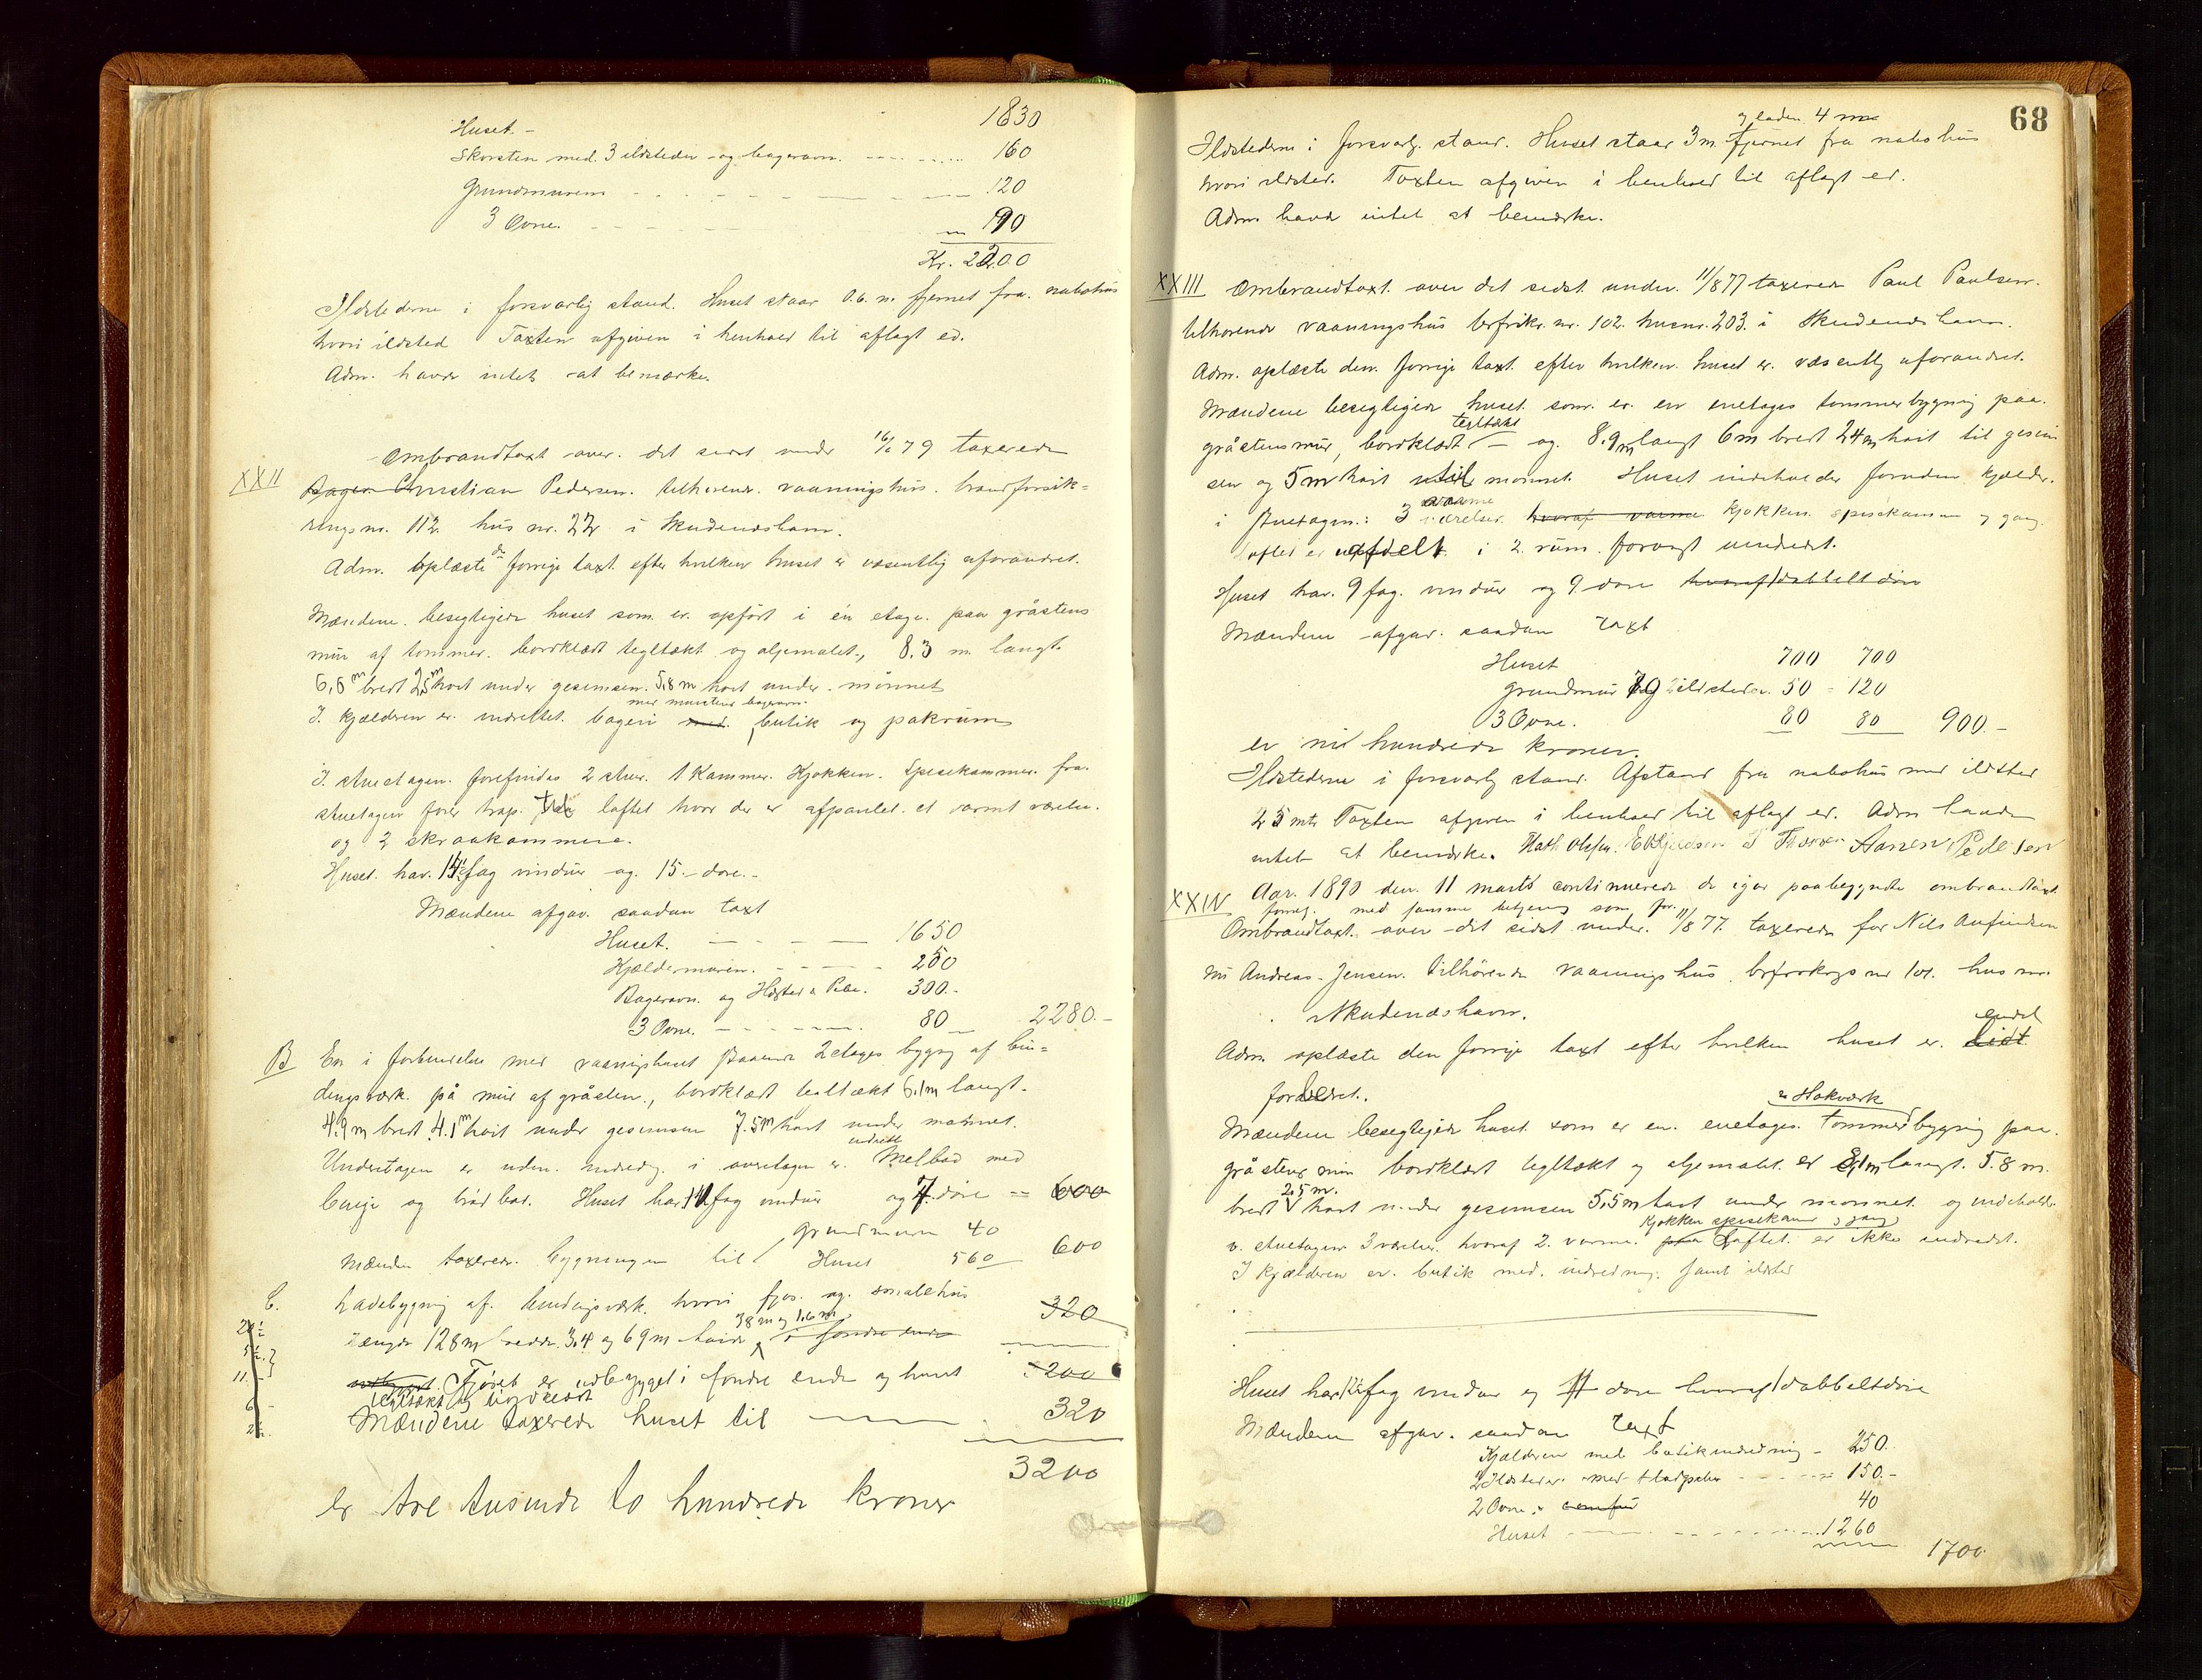 Huset. - 1830
Skorsten med 3 ildsteder og bagerovn. 160
Grundmuren 120
3 Ovne. 90
Kr. 2200
Ildstederne i forsvarlig stand. Huset staar 0.6. m. fjernet fra nabohus
hvori ildsted Taxten afgiven i henhold til aflagt ed.
Adm. havde intet at bemærke.
XXII
Ombrandtaxt over det sidst under 16/6 79 taxerede
Bager Christian Pedersen tilhørende vaaningshus. brandforsik=
ringsnr. 112 hus nr. 22 i Skudeneshavn.
Adm. oplæste den forrige taxt efter hvilken huset er væsentlig uforandret.
Mændene besigtigede huset som er opført i én etage paa gråstens
mur af tømmer bordklædt tegltækt og oljemalet, 8.3 m langt
6,6 m bredt 2,5 m høit under gesimsen 5.8 m høit under mønnet
med muret bagerovn.
I kjælderen er indrettet bageri med butik og pakrum
I stuetagen forefindes 2 stuer 1 Kammer. Kjøkken. Spisekammer. fra
stuetagen fører trap. til loftet hvor der er afpanlet et varmt værelse
og 2 skraakammere.
Huset har 14 fag vinduer og 15 døre.-
Mændene afgav saadan taxt
Huset. 1650
Kjældermuren. 250
Bagerovn og Ildsted & Pibe. 300.-
3 Ovne. 80 2280.-
B
En i forbindelse med vaaningshuset staaende 2 etages bygg af bin=
dingsværk på mur af gråsten, bordklædt tegltækt 6.1 m langt
4.9 m bredt 4.1 m høit under gesimsen 7.5 m høit under mønnet.
Underetagen er uden indredg. i overetagen er indrett Melbod med
binge og brød bod. Huset har 14 fag vinduer og 7 døre 600
grundmuren 40
Mændene taxerede bygningen til Huset 560 600
C.
Ladebygning af bindingsværk hvori fjøs og smalehus
3.8 m og 1.6 m
Længde 12.8 m bredde 3.4 og 6.9 m høide i søndre ende 320
Fjøset er udbygget i søndre ende og huset 200
tegltækt og bordklædt
Mændene taxerede huset til 320
3200
er tre tusinde to hundrede kroner
68
og laden 4 m
Ildstederne i forsvarlg. stand. Huset staar 3 m. fjernet fra nabohus
hvori ildsted. Taxten afgiven i henhold til aflagt ed.
Adm. havde intet at bemærke.
XXIII
Ombrandtaxt over det sidst under 11/8 77 taxerede Paul Paulsen
tilhørende vaaningshus brfsikr. nr. 102. husnr. 203. i Skudeneshavn.
Adm. oplæste den forrige taxt efter hvilken huset er væsentlig uforandret.
Mændene besigtigede huset som er en enetages tømmerbygning paa
tegltækt
gråstensmur, bordklædt og 8.9 m langt 6 m bredt 2.4 m høit til gesim
sen og 5 m høit til mønnet. Huset indeholder foruden kjælder
varme
i stuetagen: 3 værelser hvoraf varme kjøkken spisekammer og gang.
Loftet er afdelt i 2 rum. forøvrigt uindredet.
Huset har 9 fag vinduer og 9 døre hvoraf 1 dobbelt dør
Mændene afgav saadan Taxt
Huset 700 700
grundmur og 2 ildsteder 50 = 120
3 Ovne. 80 80 900.-
er ni hundrede kroner.
Ildstederne i forsvarlg stand. Afstand fra nabohus med ildsted
2.5 mtr Taxten afgiven i henhold til aflagt ed. Adm havde
intet at bemærke. Math Olsen. Aanen Pedersen
XXIV
Aar 1890 den 11 marts continuerede de igår paabegyndte ombrandtaxt
forretn. med samme betjening som før.
Ombrandtaxt over det sidst under 11/8 77 taxerede for Nils Anfindsen
nu Andreas Jensen tilhørende vaaningshus brforskrgs nr 101. hus nr.
Skudeneshavn.
Adm oplæste den forrige taxt efter hvilken huset er endel lidt
forbedret.
& Stokværk
Mændene besigtigede huset som er en enetages tømmerbygning paa
gråstens mur bordklædt tegltækt og oljemalet. er 8,1 m langt. 5.8 m.
2.5 m.
bredt høit under gesimsen 5,5 m høit under mønnet og indeholder
kjøkken spisekamr og gang
i stuetagen 3 værelser hvoraf 2 varme. Loftet er ikke indredet.
I kjælderen er butik med indredning. samt ildsted
Huset har fag vinduer og 11 døre hvoraf 1 dobbeltdøre
Mændene afgav saadan taxt
Kjælderen med butikindredning - 250.
2 Ildsteder med 150.-
2 Ovne 40
Huset 1260
1700.